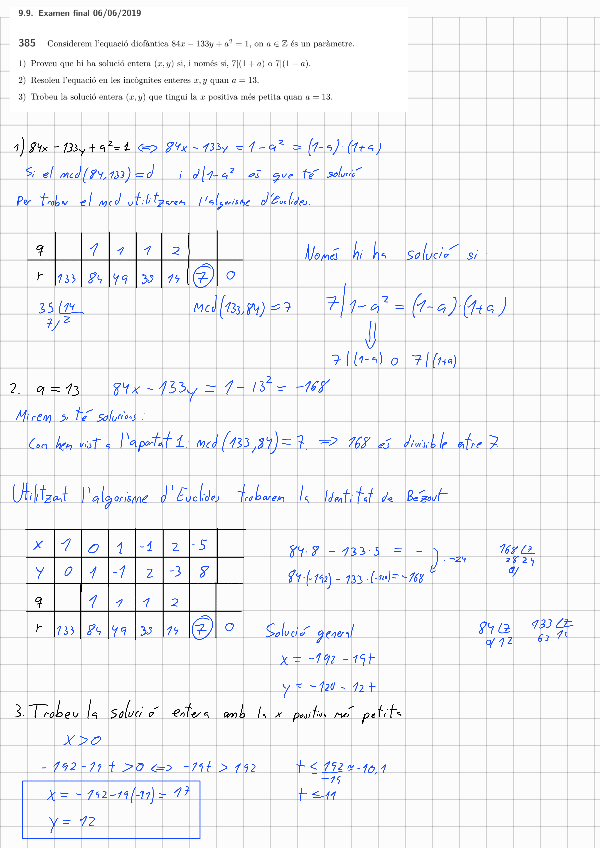 9.9. Examen final 06/06/2019
385 Considerem l'equació diofàntica 84x − 133y + a² = 1, on a ∈ ℤ és un paràmetre.
1) Proveu que hi ha solució entera (x, y) si, i només si, 7|(1 + a) o 7|(1 − a).
2) Resoleu l'equació en les incògnites enteres x, y quan a = 13.
3) Trobeu la solució entera (x, y) que tingui la x positiva més petita quan a = 13.
1) 84x − 133y + a² = 1 ⟺ 84x − 133y = 1 − a² = (1−a)·(1+a)
Si el mcd(84,133) = d i d|1−a² es que té solució
Per trobar el mcd utilitzarem l'algorisme d'Euclides.
q 1 1 1 2
r 133 84 49 35 14 7 0
35 14
7/ 2
mcd(133,84) = 7
Només hi ha solució si
7|1−a² = (1−a)·(1+a)
⇓
7|(1−a) o 7|(1+a)
2. a = 13 84x − 133y = 1 − 13² = −168
Mirem si té solucions:
Com hem vist a l'apartat 1: mcd(133,84) = 7. ⇒ 168 es divisible entre 7
Utilitzant l'algorisme d'Euclides trobarem la Identitat de Bézout
x 1 0 1 −1 2 −5
y 0 1 −1 2 −3 8
q 1 1 1 2
r 133 84 49 35 14 7 0
84·8 − 133·5 = −
84·(−192) − 133·(−120) = −168
·−24
168 7
28 24
0/
Solució general
x = −192 − 19t
y = −120 − 12t
84 7
0/ 12
133 7
63 19
3. Trobeu la solució entera amb la x positiva més petita
x > 0
−192 − 19t > 0 ⟺ −19t > 192
t ≤ 192/−19 ≈ −10,1
t ≤ −11
x = −192 − 19(−11) = 17
y = 12